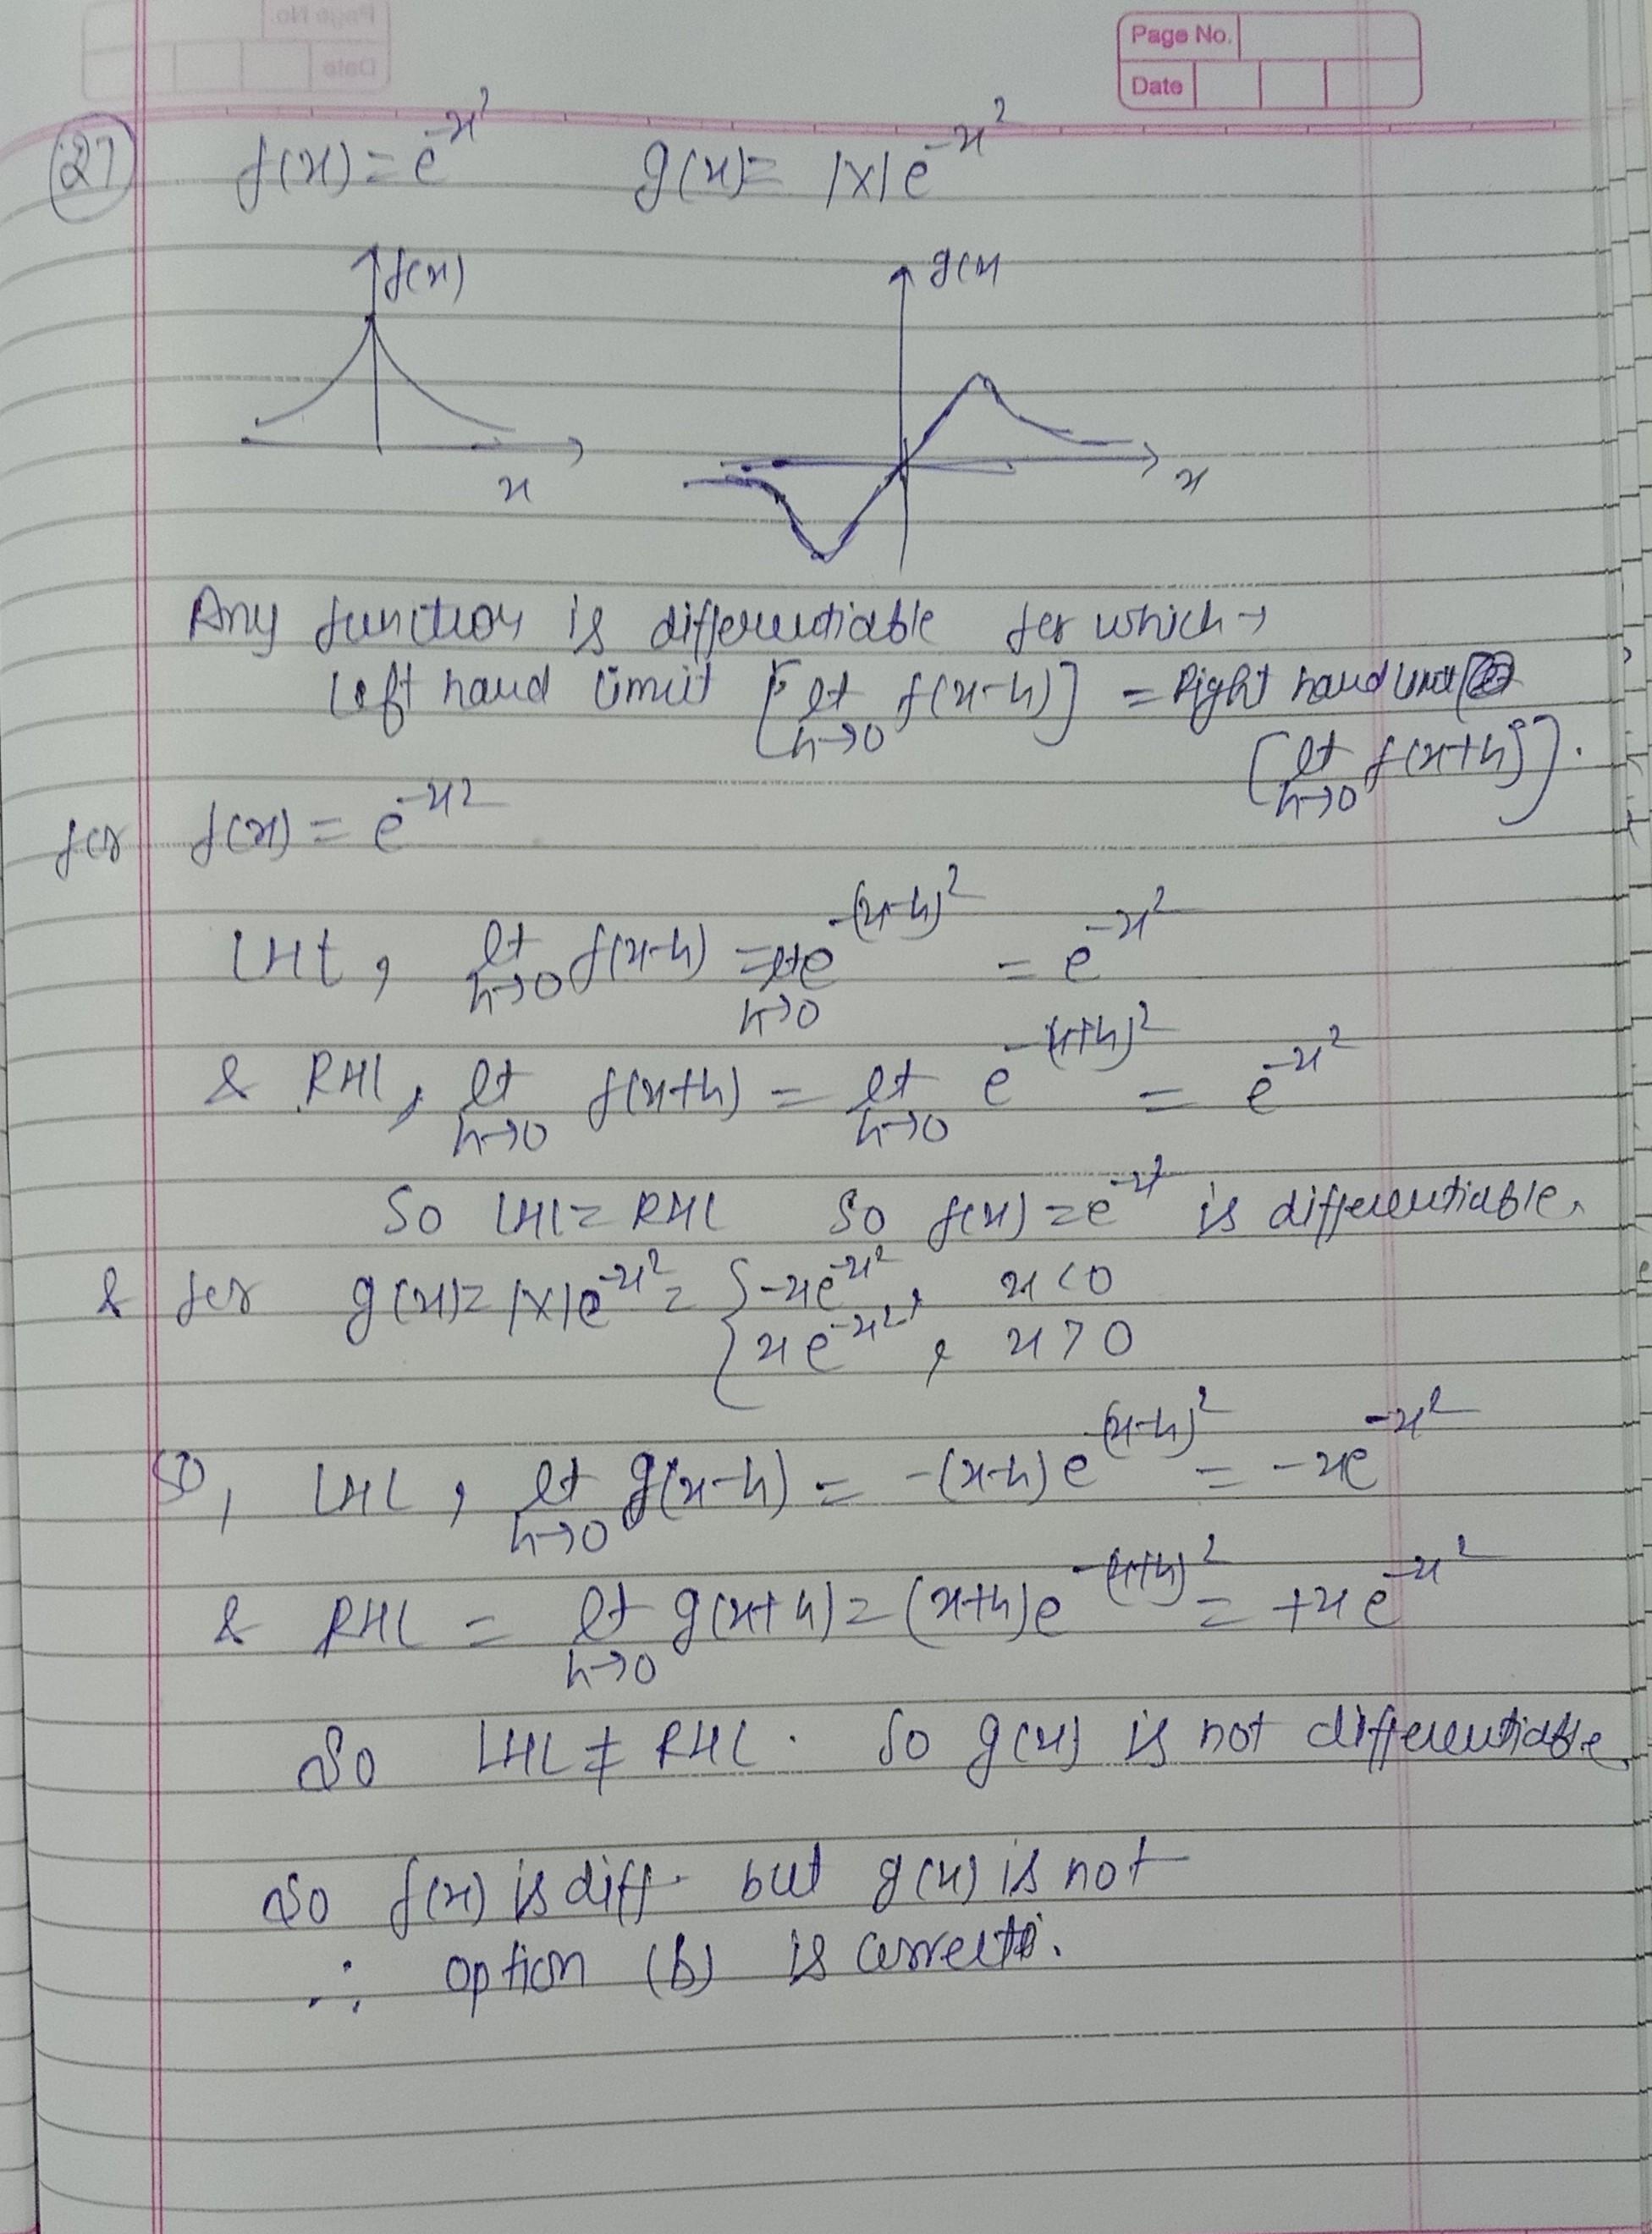 Page No.
Date
(27) f(x) = e^{-x^2} g(x) = |x|e^{-x^2}
f(x) g(x
x x
Any function is differentiable for which →
Left hand limit [lt_{h→0} f(x-h)] = Right hand limit
[lt_{h→0} f(x+h)].
for f(x) = e^{-x^2}
LHL, lt_{h→0} f(x-h) = lt_{h→0} e^{-(x-h)^2} = e^{-x^2}
& RHL, lt_{h→0} f(x+h) = lt_{h→0} e^{-(x+h)^2} = e^{-x^2}
So LHL = RHL So f(x) = e^{-x^2} is differentiable.
& for g(x) = |x|e^{-x^2} = { -xe^{-x^2}, x < 0
xe^{-x^2}, x > 0
So, LHL, lt_{h→0} g(x-h) = -(x-h)e^{(x-h)^2} = -xe^{-x^2}
& RHL = lt_{h→0} g(x+h) = (x+h)e^{-(x+h)^2} = +xe^{-x^2}
So LHL ≠ RHL. So g(x) is not differentiable.
So f(x) is diff. but g(x) is not
∴ option (b) is correct.